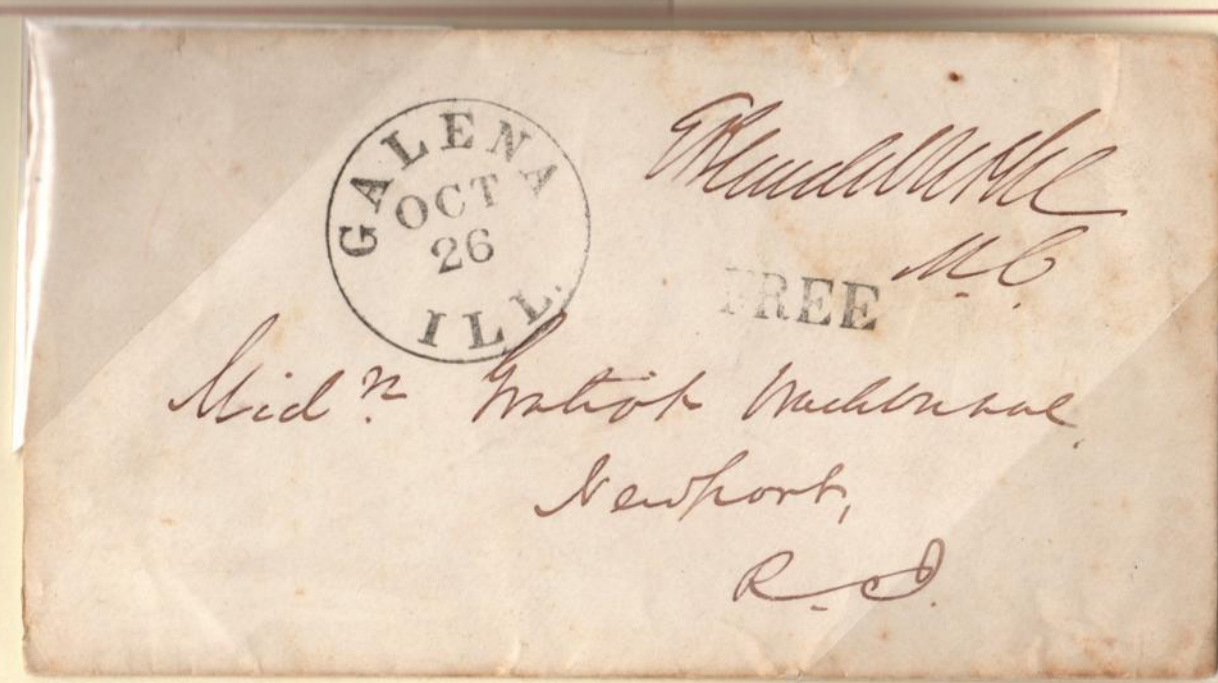 GALENA
OCT
26
ILL.
E B Washburne
M.C.
FREE
Midn. Gratiot Washburne,
Newport,
R.I.